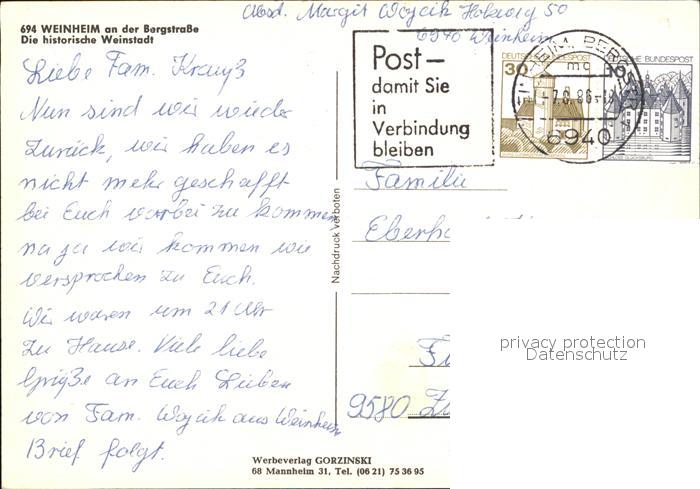 694 WEINHEIM an der Bergstraße
Die historische Weinstadt
Absd. Margit Wojcik Holzweg 50
6940 Weinheim
Liebe Fam. Krauß
Nun sind wir wieder
zurück, wir haben es
nicht mehr geschafft
bei Euch vorbei zu kommen
na ja wir kommen wie
versprochen zu Euch.
Wir waren um 21 Uhr
zu Hause. Viele liebe
Grüße an Euch Lieben
von Fam. Wojcik aus Weinheim
Brief folgt.
Nachdruck verboten
Post–
damit Sie
in
Verbindung
bleiben
DEUTSCHE BUNDESPOST
30
DEUTSCHE BUNDESPOST
10
WEINHEIM, BERGSTR
mc
-7.6.86-
6940
Familie
Eberha
9580 Z
privacy protection
Datenschutz
Werbeverlag GORZINSKI
68 Mannheim 31, Tel. (06 21) 75 36 95